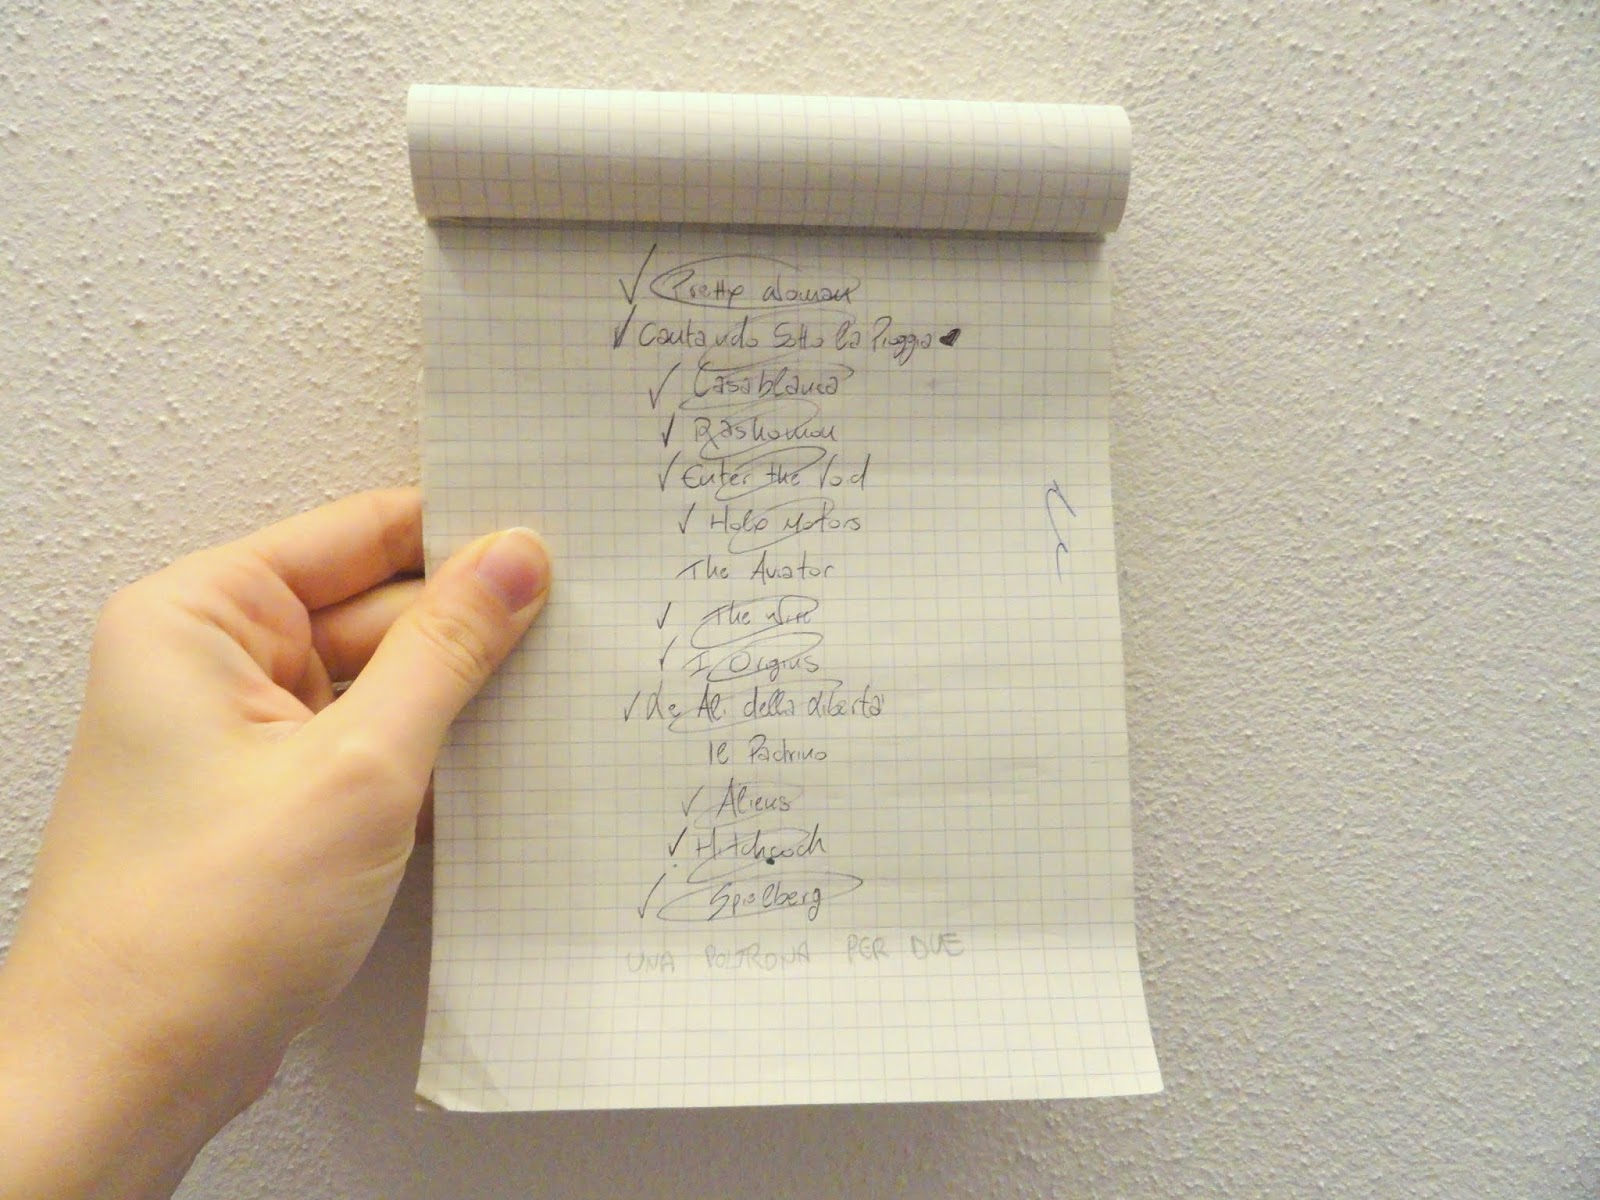 ✓ Pretty Woman
✓ Cantando Sotto la Pioggia ♥
✓ Casablanca
✓ Rashomon
✓ Enter the Void
✓ Holy Motors
The Aviator
✓ The Wire
✓ I Origins
✓ Le Ali della Libertà
Il Padrino
✓ Aliens
✓ Hitchcock
✓ Spielberg
UNA POLTRONA PER DUE